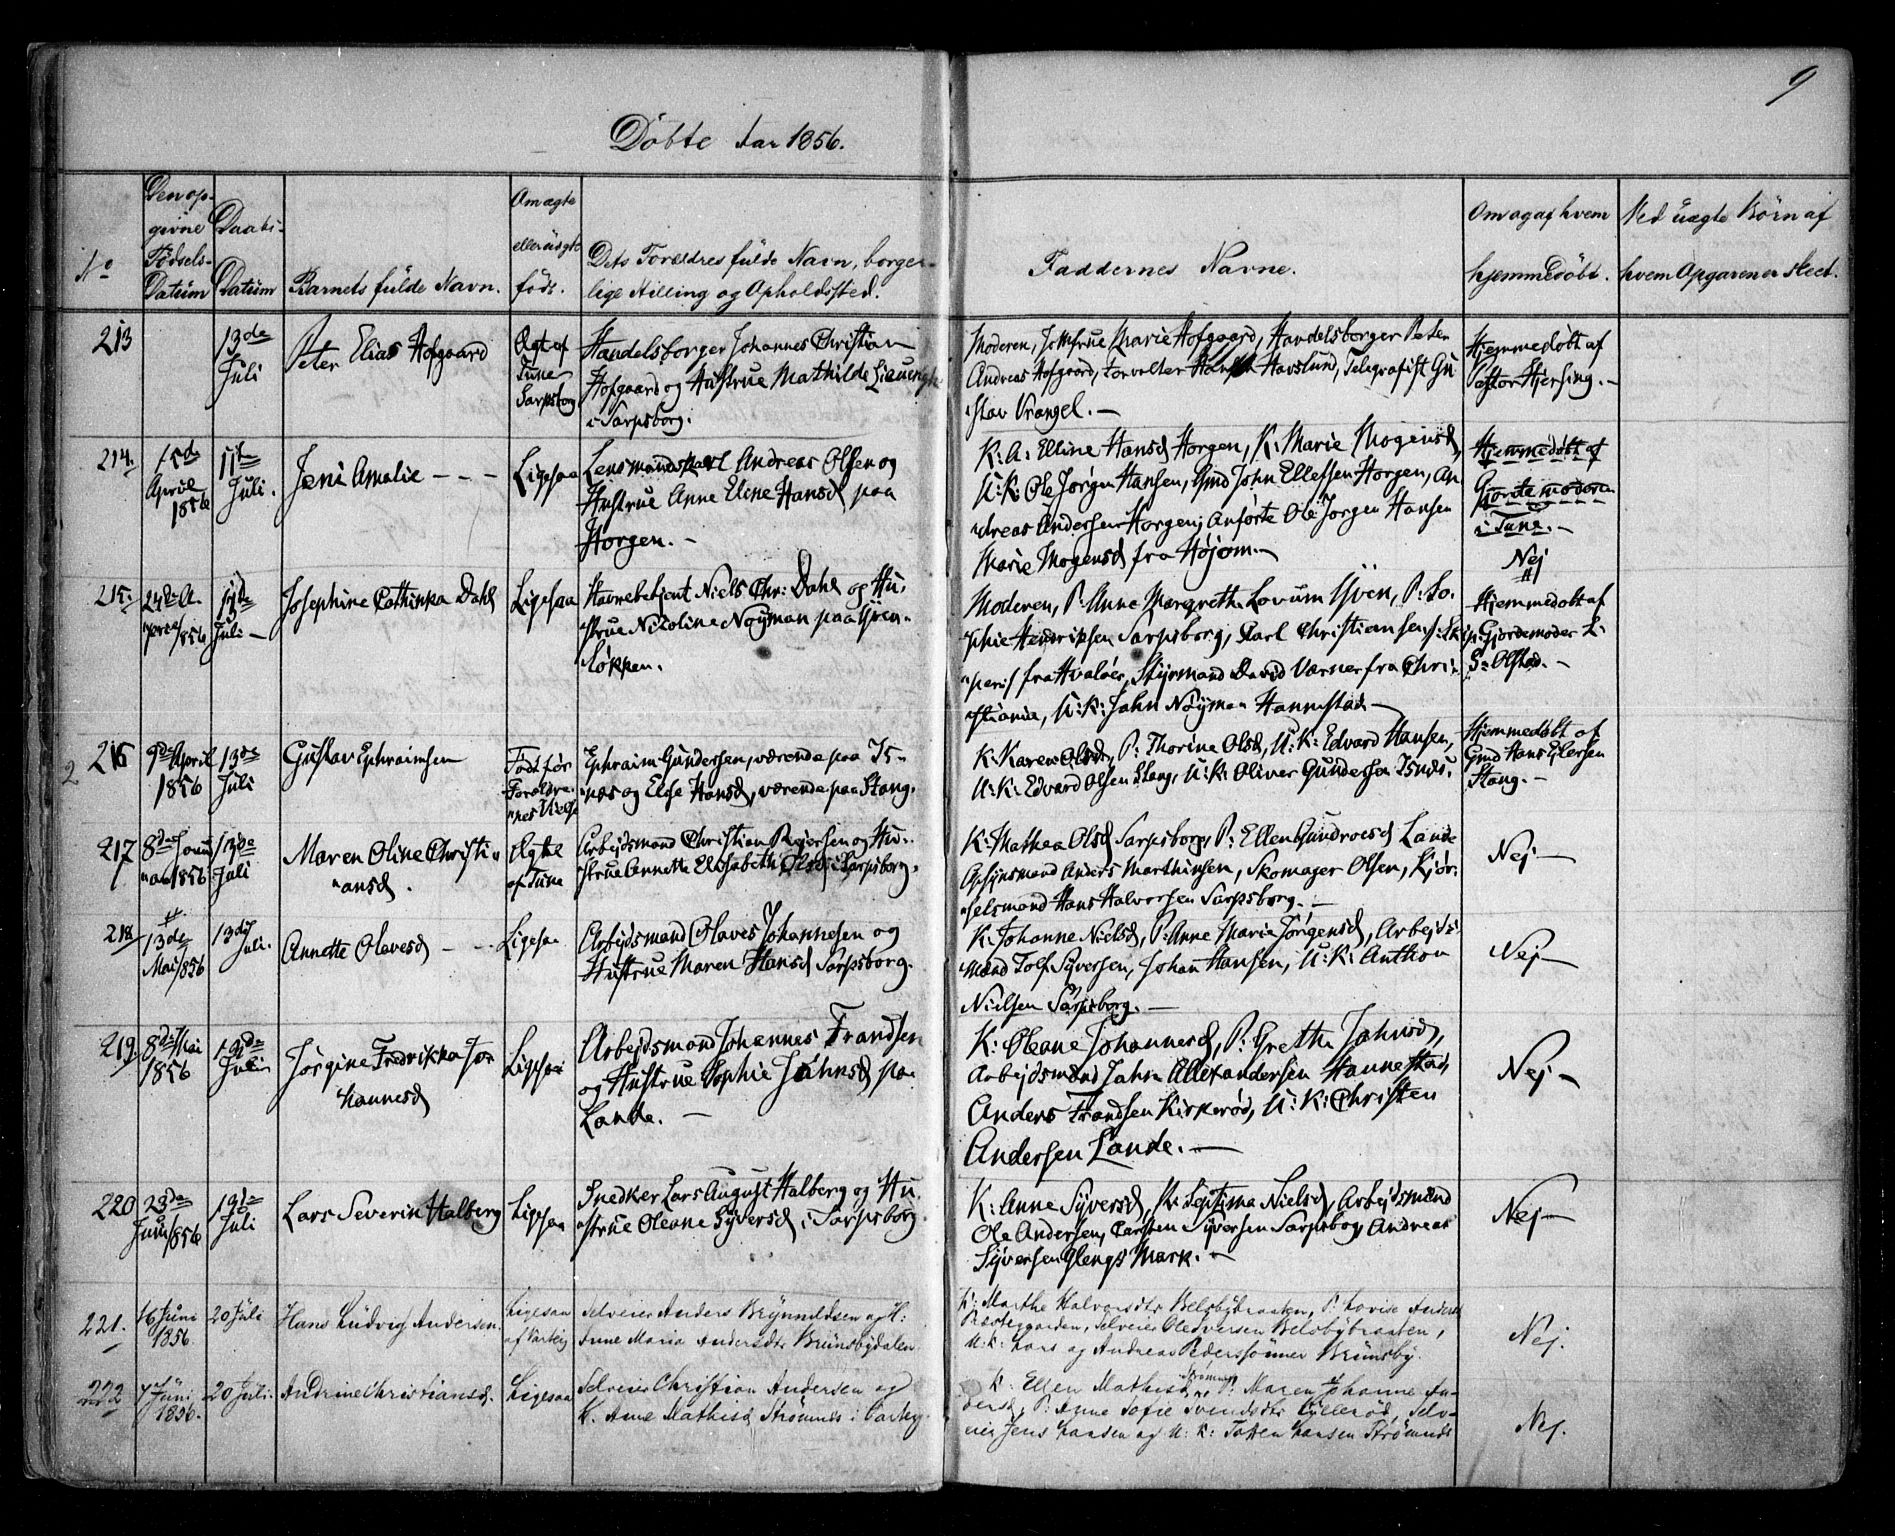 9
Döbte Aar 1856.
No
Den op-
givne
Fødsels-
Datum
Daabs-
Datum
Barnets fulde Navn.
Om ægte
eller uægte
født.
Dets Forældres fulde Navn, borger-
lige Stilling og Opholdssted.
Faddernes Navne.
Om og af hvem
hjemmedøbt.
Ved uægte Børn af
hvem Opgaven er skeet.
213
13de
Juli
Peter Elias Hofgaard
Ægte af
Tune
Sarpsborg
Handelsborger Johannes Christian
Hofgaard og Hustrue Mathilde
i Sarpsborg.
Moderen, Jomfrue Marie Hofgaard, Handelsborger Peter
Andreas Hofgaard, Forvalter Hafslund, Telegrafist Gu
stav Vrangel. —
Hjemmedøbt af
Pastor Hjersing. —
214.
15de
April
1856
11te
Juli.
Jeni Amalie - - -
Ligesaa
Lensmandskarl Andreas Olsen og
Hustrue Anne Eline Hansd paa
Horgen. —
K: A: Elline Hansd Horgen, K: Marie Mogensd,
U: K: Ole Jørgen Hansen, Gmd John Ellefsen Horgen, An
dreas Andersen Horgen; anførte Ole Jørgen Hansen
Marie Mogensd fra Højom. —
Hjemmedøbt af
Gjordemoderen
i Tune. —
Nej
215.
24de A-
pril 1856
11te
Juli —
Josephine Cathinka Dahl
Ligesaa
Havnebetjent Niels Chr: Dahl og Hu-
strue Nicoline Nøyman paa Yven-
løkken.
Moderen, P: Anne Margrethe Lovum Yven, P: So-
phie Hendriksen Sarpsborg, Karl Christiansen
fra Hvaløer, Styrmand David Værner fra Chri-
stiania, U: K: Jahn Nøyman Hannestad —
Hjemmedøbt af
Gjordemoder L:
S: Olstad. —
2
216
9de April
1856
13de
Juli
Gustav Ephraimsen
Født før
Foraldre-
nes Vielse
Ephraim Gundersen, værende paa Is-
næs og Else Hansd, værende paa Stang.
K: Karen Olsd, P: Thorine Olsd, U: K: Edvard Hansen,
U: K: Edvard Olsen Stang, U: K: Oliver Gundersen Isnæs.
Hjemmedøbt af
Gmd Hans Eilersen
Stang. —
217
8de Janu
ar 1856
13de
Juli
Maren Oline Christi-
ansd.
Ægte
af Tune
Arbejdsmand Christian Rejersen og Hu-
strue Annette Elisabeth Olsd i Sarpsborg.
K: Mathea Olsd Sarpsborg, P: Ellen Gundroesd Lande
Opsynsmand Anders Marthinsen, Skomager Olsen, Kjør-
selsmand Hans Halvorsen Sarpsborg. —
Nej —
218
13de
Mai 1856
13de
Juli.
Annette Olavesd - -
Ligesaa
Arbejdsmand Olaves Johannesen og
Hustrue Maren Hansd Sarpsborg.
K: Johanne Nielsd, P: Anne Marie Jørgensd, Arbejds-
mand Tolf Syversen, Johan Hansen, U: K: Anthon
Nielsen Sarpsborg. —
Nej —
219.
8de Mai
1856
13de
Juli
Jørgine Fredrikka Jo-
hannesd
Ligesaa
Arbejdsmand Johannes Frandsen
og Hustrue Sophie Jahnsd paa
Lande. —
K: Oleane Johannesd, P: Grethe Jahnsd,
Arbejdsmand Jahn Allexandersen Hannestad,
Anders Frandsen Kirkerød, U: K: Christen
Andersen Lande. —
Nej —
220
23de
Juni 1856
13de
Juli
Lars Severin Halberg
Ligesaa
Snedker Lars August Halberg og Hu-
strue Oleane Syversd i Sarpsborg.
K: Anne Syversd, P: Septima Nielsd, Arbejdsmand
Ole Andersen, Carsten Syversen Sarpsborg, Andreas
Syversen Glengs Mark. —
Nej —
221.
16 Juni
1856.
20 Juli
Hans Ludvig Andersen.
Ligesaa
af Varteig
Selveier Anders Brynnildsen og H:
Anne Maria Andersdtr Brunsbydalen
K: Marthe Halvorsdtr Belsbybraaten, P: Lovise Anders
Præstegaarden, Selveier Ole Iversen Belsbybraaten,
U: K: Lars og Andreas Pederssønner Brunsby.
Nej.
222
7 Juni
1856.
20 Juli.
Andrine Christiansd.
Ligesaa
Selveier Christian Andersen og
K. Anne Mathisd Strømnes i Varteig.
K: Ellen Mathisd Strømnes, P: Maren Johanne An-
dersd, P: Anne Sofie Svendsdtr Tyllerød, Selv-
eier Jens Hansen og U: K: Hansen Strømnes
Nej.